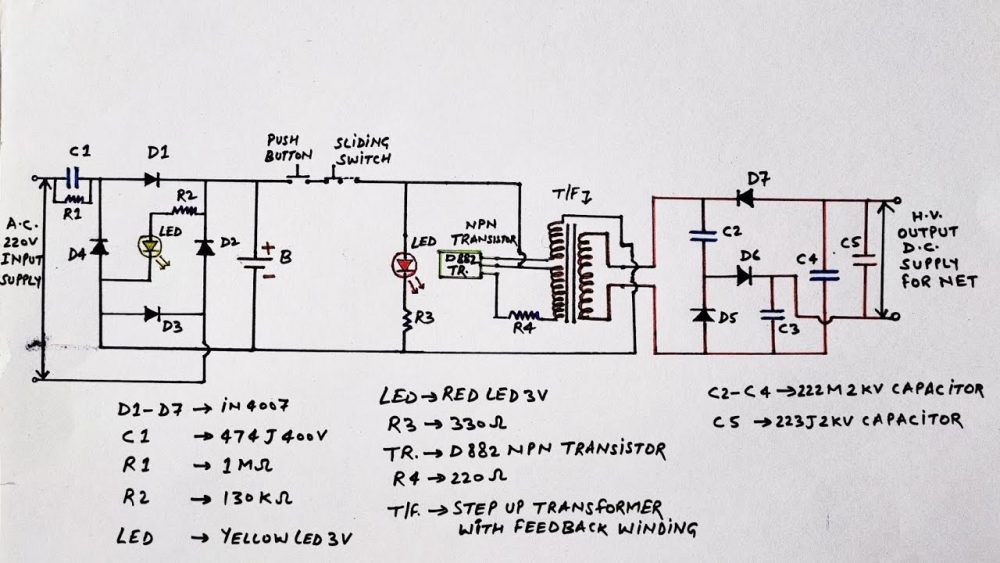 C1
D1
PUSH
BUTTON
SLIDING
SWITCH
R1
R2
LED
D4
D2
D3
A.C.
220V
INPUT
SUPPLY
+
B
-
LED
R3
NPN
TRANSISTOR
D882
TR.
R4
T/F
D7
C2
D6
D5
C3
C4
C5
H.V.
OUTPUT
D.C.
SUPPLY
FOR NET
D1-D7 → IN4007
C1 → 474J400V
R1 → 1MΩ
R2 → 130KΩ
LED → YELLOW LED 3V
LED → RED LED 3V
R3 → 330Ω
TR. → D882 NPN TRANSISTOR
R4 → 220Ω
T/F. → STEP UP TRANSFORMER
WITH FEEDBACK WINDING
C2-C4 → 222M2KV CAPACITOR
C5 → 223J2KV CAPACITOR